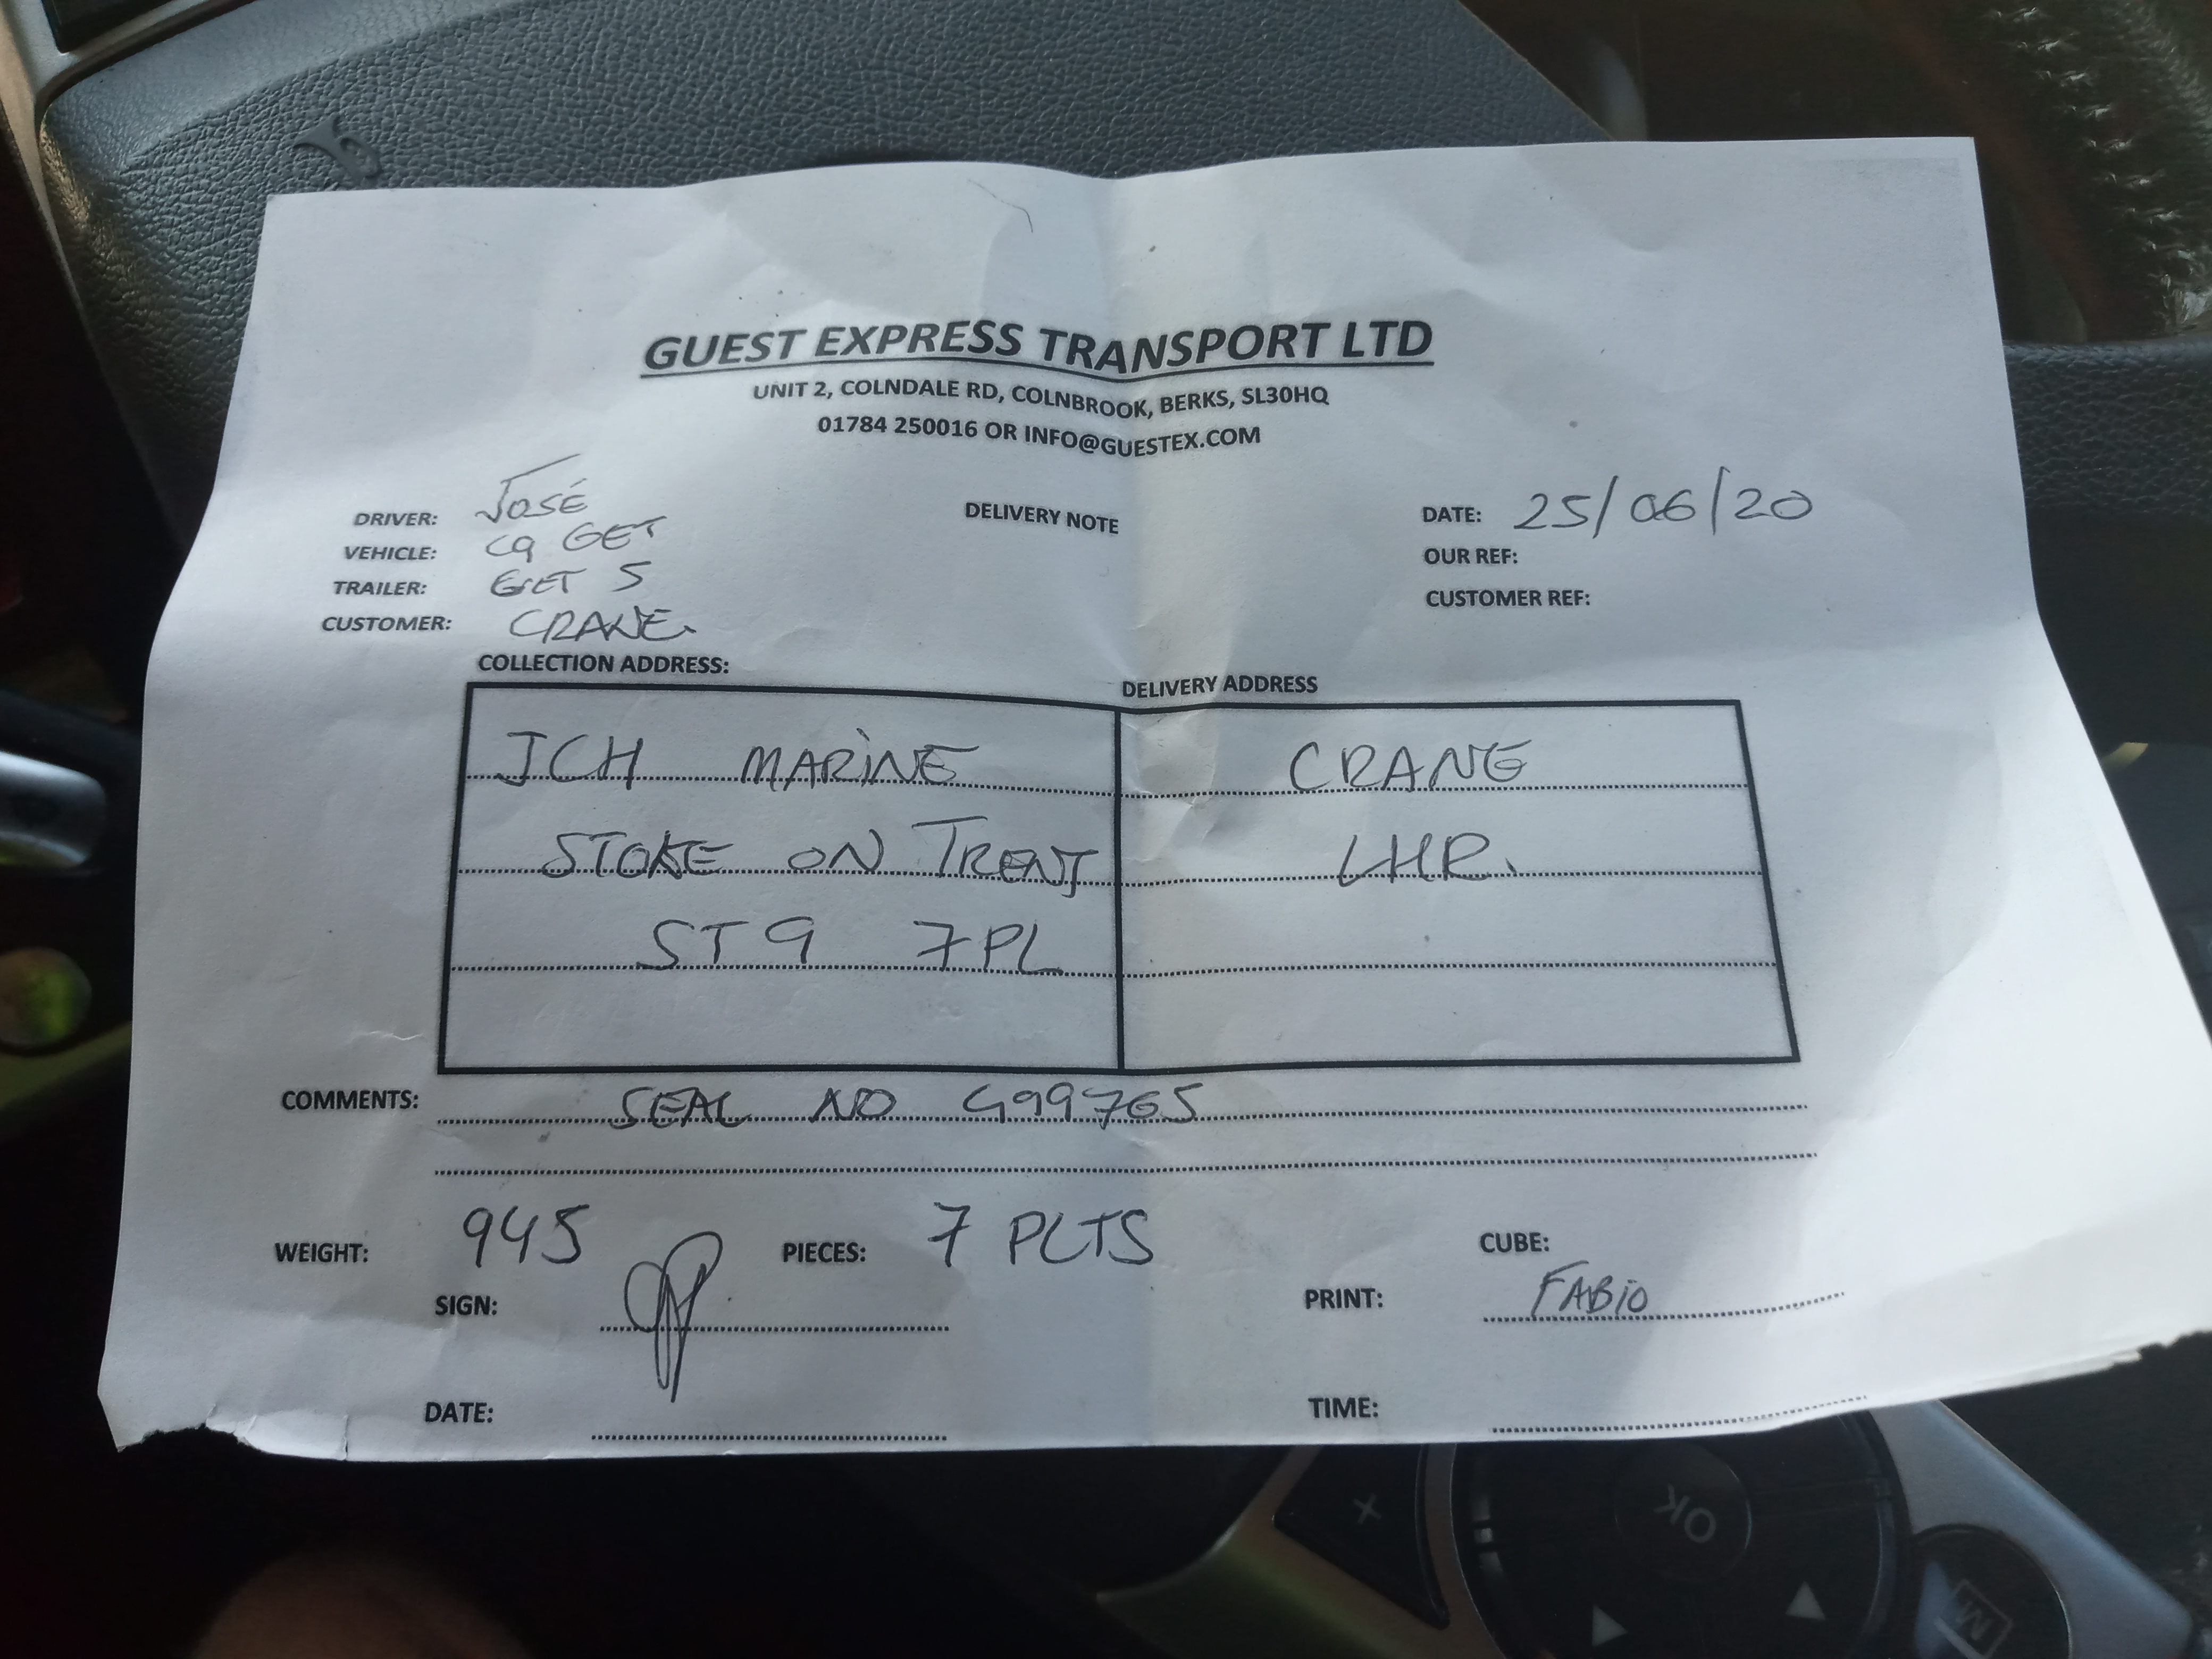 GUEST EXPRESS TRANSPORT LTD
UNIT 2, COLNDALE RD, COLNBROOK, BERKS, SL30HQ
01784 250016 OR INFO@GUESTEX.COM
DRIVER: JOSÉ
VEHICLE: C9 GET
TRAILER: GET 5
CUSTOMER: CRANE.
DELIVERY NOTE
DATE: 25/06/20
OUR REF:
CUSTOMER REF:
COLLECTION ADDRESS:
JCH MARINE
STOKE ON TRENT
ST9 7PL
DELIVERY ADDRESS
CRANE
LHR.
COMMENTS: SEAL NO G99765
WEIGHT: 945 PIECES: 7 PLTS CUBE:
SIGN: PRINT: FABIO
DATE: TIME:
+
OK
M